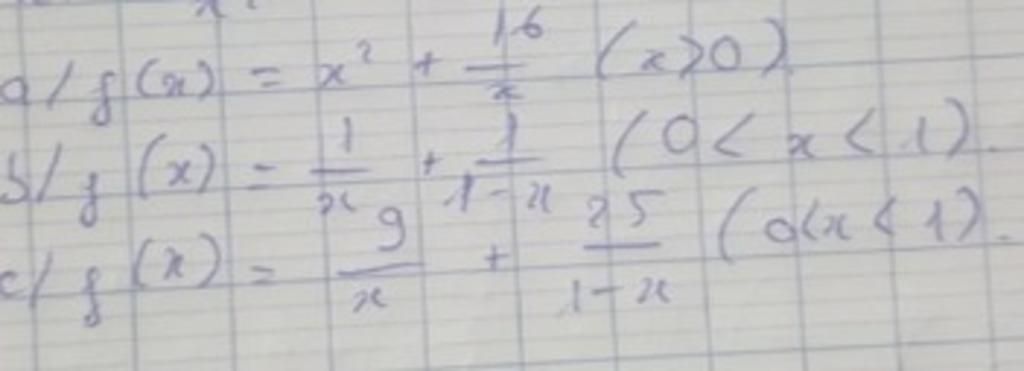 a/ f(x) = x² + 16/x (x>0)
b/ f(x) = 1/x + 1/1-x (0 < x < 1).
c/ f(x) = 9/x + 25/1-x (0<x < 1).